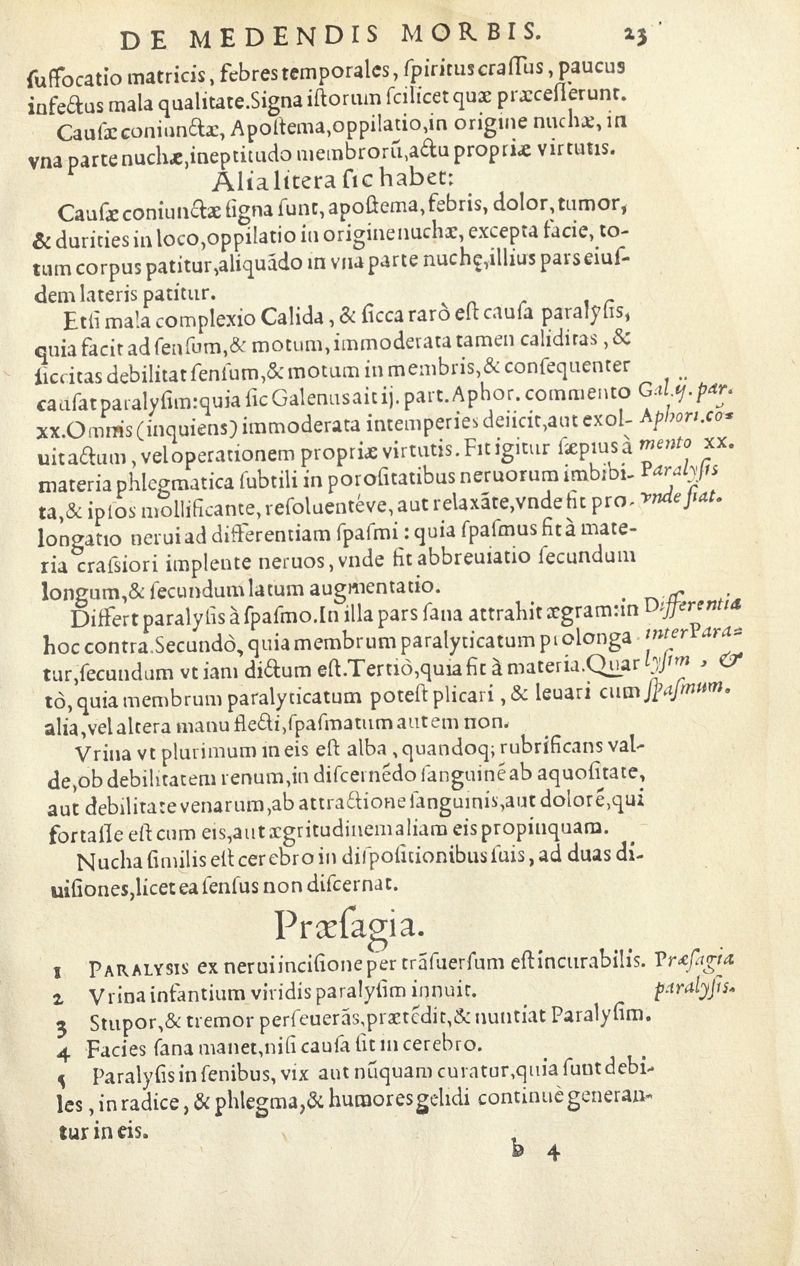 DE MEDENDIS MORBIS. 23
ſuffocatio matricis, febres temporales, ſpiritus craſſus, paucus
infectus mala qualitate. Signa iſtorum ſcilicet quæ præceſſerunt.
Cauſæ coniunctæ, Apoſtema, oppilatio, in origine nuchæ, in
vna parte nuchæ, ineptitudo membrorũ, actu propriæ virtutis.
Alia litera ſic habet:
Cauſæ coniunctæ ſigna ſunt, apoſtema, febris, dolor, tumor,
& durities in loco, oppilatio in origine nuchæ, excepta facie, to-
tum corpus patitur, aliquãdo in vna parte nuchę, illius pars eiuſ-
dem lateris patitur.
Etſi mala complexio Calida, & ſicca rarò eſt cauſa paralyſis,
quia facit ad ſenſum, & motum, immoderata tamen caliditas, &
ſiccitas debilitat ſenſum, & motum in membris, & conſequenter
cauſat paralyſim: quia ſic Galenus ait ij. part. Aphor. commento Gal. ij. par.
xx. Omnis (inquiens) immoderata intemperies deiicit, aut exol- Aphori. co-
uit actum, vel operationem propriæ virtutis. Fit igitur ſæpius à mento xx.
materia phlegmatica ſubtili in poroſitatibus neruorum imbibi- Paralyſis
ta, & ipſos mollificante, reſoluentéve, aut relaxãte, vnde fit pro- vnde fiat.
longatio nerui ad differentiam ſpaſmi: quia ſpaſmus fit à mate-
ria craſsiori implente neruos, vnde fit abbreuiatio ſecundum
longum, & ſecundum latum augmentatio.
Differt paralyſis à ſpaſmo. In illa pars ſana attrahit ægram: in Differentia
hoc contra. Secundò, quia membrum paralyticatum prolonga inter Para-
tur, ſecundum vt iam dictum eſt. Tertiò, quia fit à materia. Quar lyſim, &
tò, quia membrum paralyticatum poteſt plicari, & leuari cum ſpaſmum.
alia, vel altera manu flecti, ſpaſmatum autem non.
Vrina vt plurimum in eis eſt alba, quandoq; rubrificans val-
de, ob debilitatem renum, in diſcernẽdo ſanguinẽ ab aquoſitate,
aut debilitate venarum, ab attractione ſanguinis, aut dolorẽ, qui
fortaſſe eſt cum eis, aut ægritudinem aliam eis propinquam.
Nucha ſimilis eſt cerebro in diſpoſitionibus ſuis, ad duas di-
uiſiones, licet ea ſenſus non diſcernat.
Præſagia.
1 PARALYSIS ex nerui inciſione per trãſuerſum eſt incurabilis. Præſagia
2 Vrina infantium viridis paralyſim innuit. paralyſis.
3 Stupor, & tremor perſeuerãs, prætẽdit, & nuntiat Paralyſim.
4 Facies ſana manet, niſi cauſa ſit in cerebro.
5 Paralyſis in ſenibus, vix aut nũquam curatur, quia ſunt debi-
les, in radice, & phlegma, & humores gelidi continuè generan-
tur in eis.
b 4